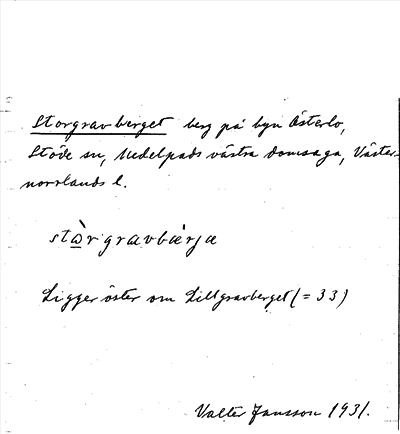 Storgravberget berg på byn Österlo,
Stöde sn, Medelpads västra domsaga, Väster-
norrlands l.
stɷ̀rgravbærja
Ligger öster om Lillgravberget (= 33)
Valter Jansson 1931.